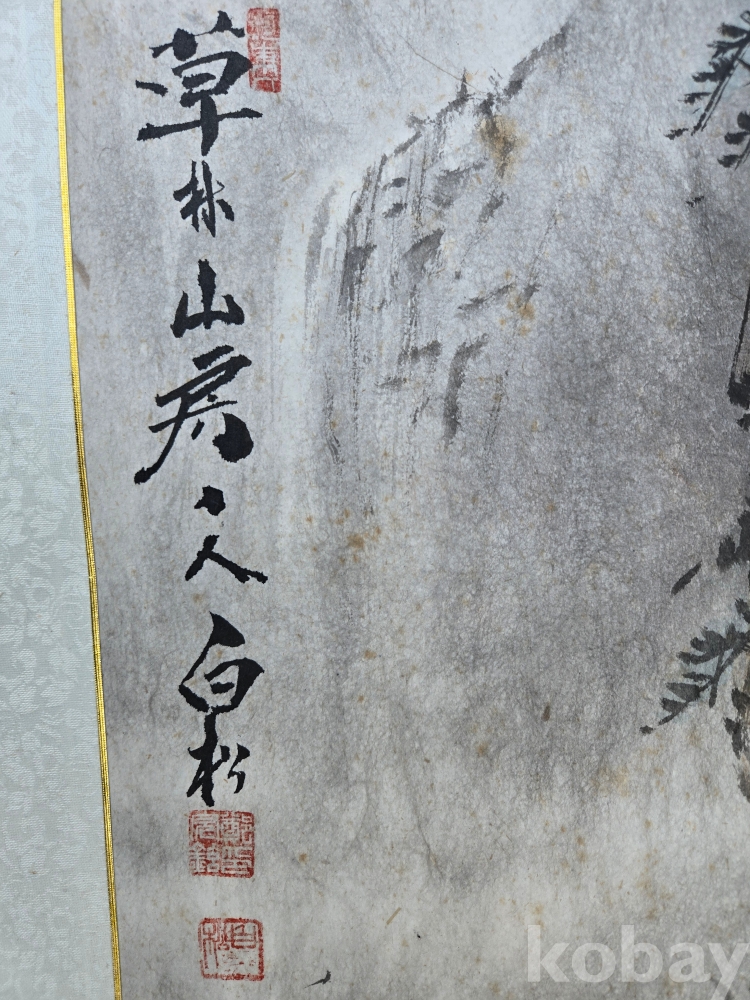 草林山房主人白松
白松
kobay